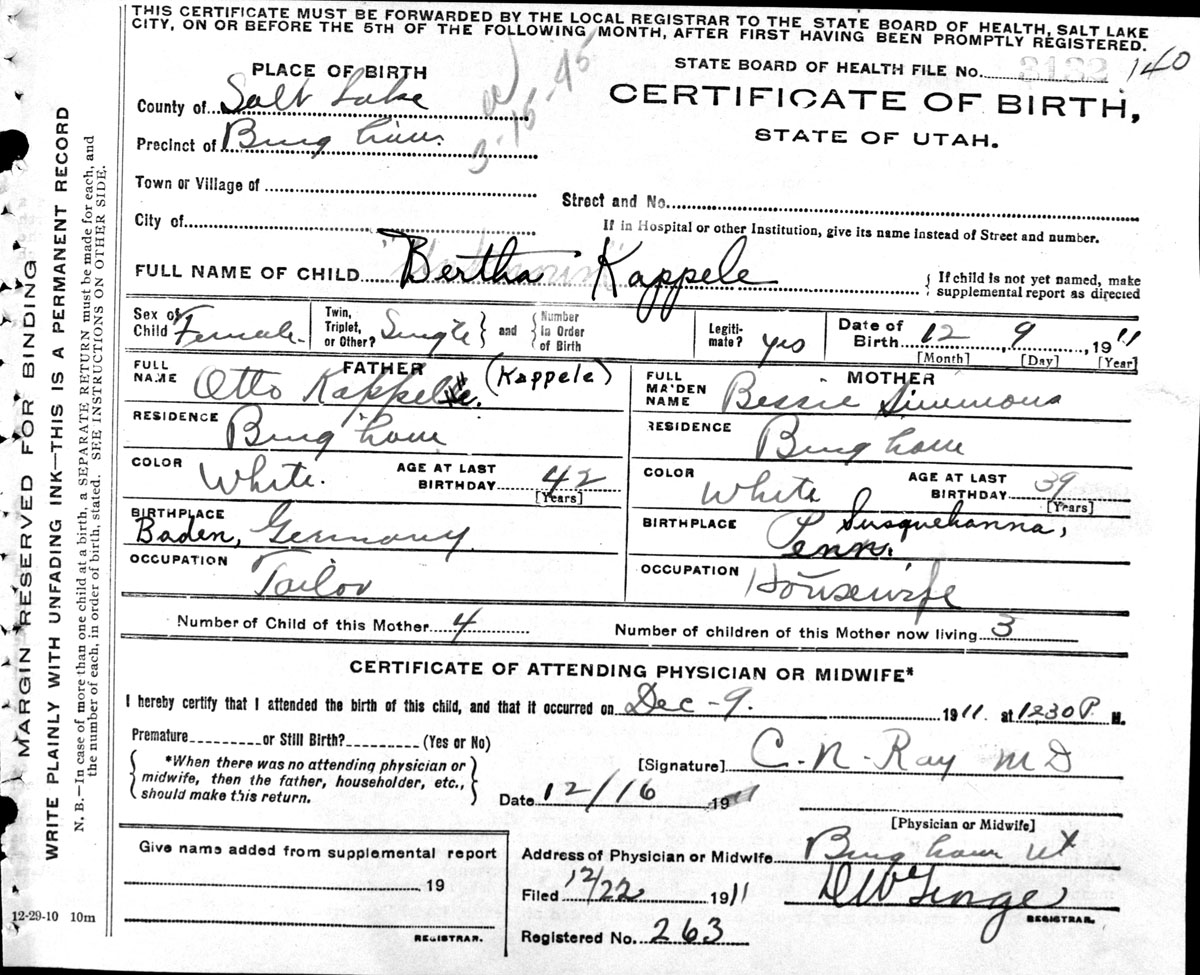 THIS CERTIFICATE MUST BE FORWARDED BY THE LOCAL REGISTRAR TO THE STATE BOARD OF HEALTH, SALT LAKE
CITY, ON OR BEFORE THE 5TH OF THE FOLLOWING MONTH, AFTER FIRST HAVING BEEN PROMPTLY REGISTERED.
STATE BOARD OF HEALTH FILE No. 3132 140
PLACE OF BIRTH
CERTIFICATE OF BIRTH,
STATE OF UTAH.
County of Salt Lake
Precinct of Bingham.
3-15-45
Town or Village of
Street and No.
City of
If in Hospital or other Institution, give its name instead of Street and number.
FULL NAME OF CHILD Bertha Kappele
{ If child is not yet named, make
supplemental report as directed
Sex of Child Female.
Twin, Triplet, or Other? Single } and { Number in Order of Birth
Legiti-mate? yes
Date of Birth 12, 9, 1911
[Month] [Day] [Year]
FATHER
FULL NAME Otto Kappele. (Kappele)
RESIDENCE Bingham
COLOR White. AGE AT LAST BIRTHDAY 42
[Years]
BIRTHPLACE Baden, Germany
OCCUPATION Tailor
MOTHER
FULL MAIDEN NAME Bessie Simmons
RESIDENCE Bingham
COLOR White AGE AT LAST BIRTHDAY 39
[Years]
BIRTHPLACE Susquehanna, Penn.
OCCUPATION Housewife
Number of Child of this Mother 4
Number of children of this Mother now living 3
CERTIFICATE OF ATTENDING PHYSICIAN OR MIDWIFE*
I hereby certify that I attended the birth of this child, and that it occurred on Dec-9. 1911. at 1230 P. M.
Premature or Still Birth? (Yes or No)
{ *When there was no attending physician or
midwife, then the father, householder, etc.,
should make this return. }
[Signature] C. N. Ray MD
Date 12/16 1911
[Physician or Midwife]
Give name added from supplemental report
19
REGISTRAR.
Address of Physician or Midwife Bingham Ut
Filed 12/22 1911 D W George
REGISTRAR.
Registered No. 263
12-29-10 10m
MARGIN RESERVED FOR BINDING
WRITE PLAINLY WITH UNFADING INK—THIS IS A PERMANENT RECORD
N. B.—In case of more than one child at a birth, a SEPARATE RETURN must be made for each, and
the number of each, in order of birth, stated. SEE INSTRUCTIONS ON OTHER SIDE.